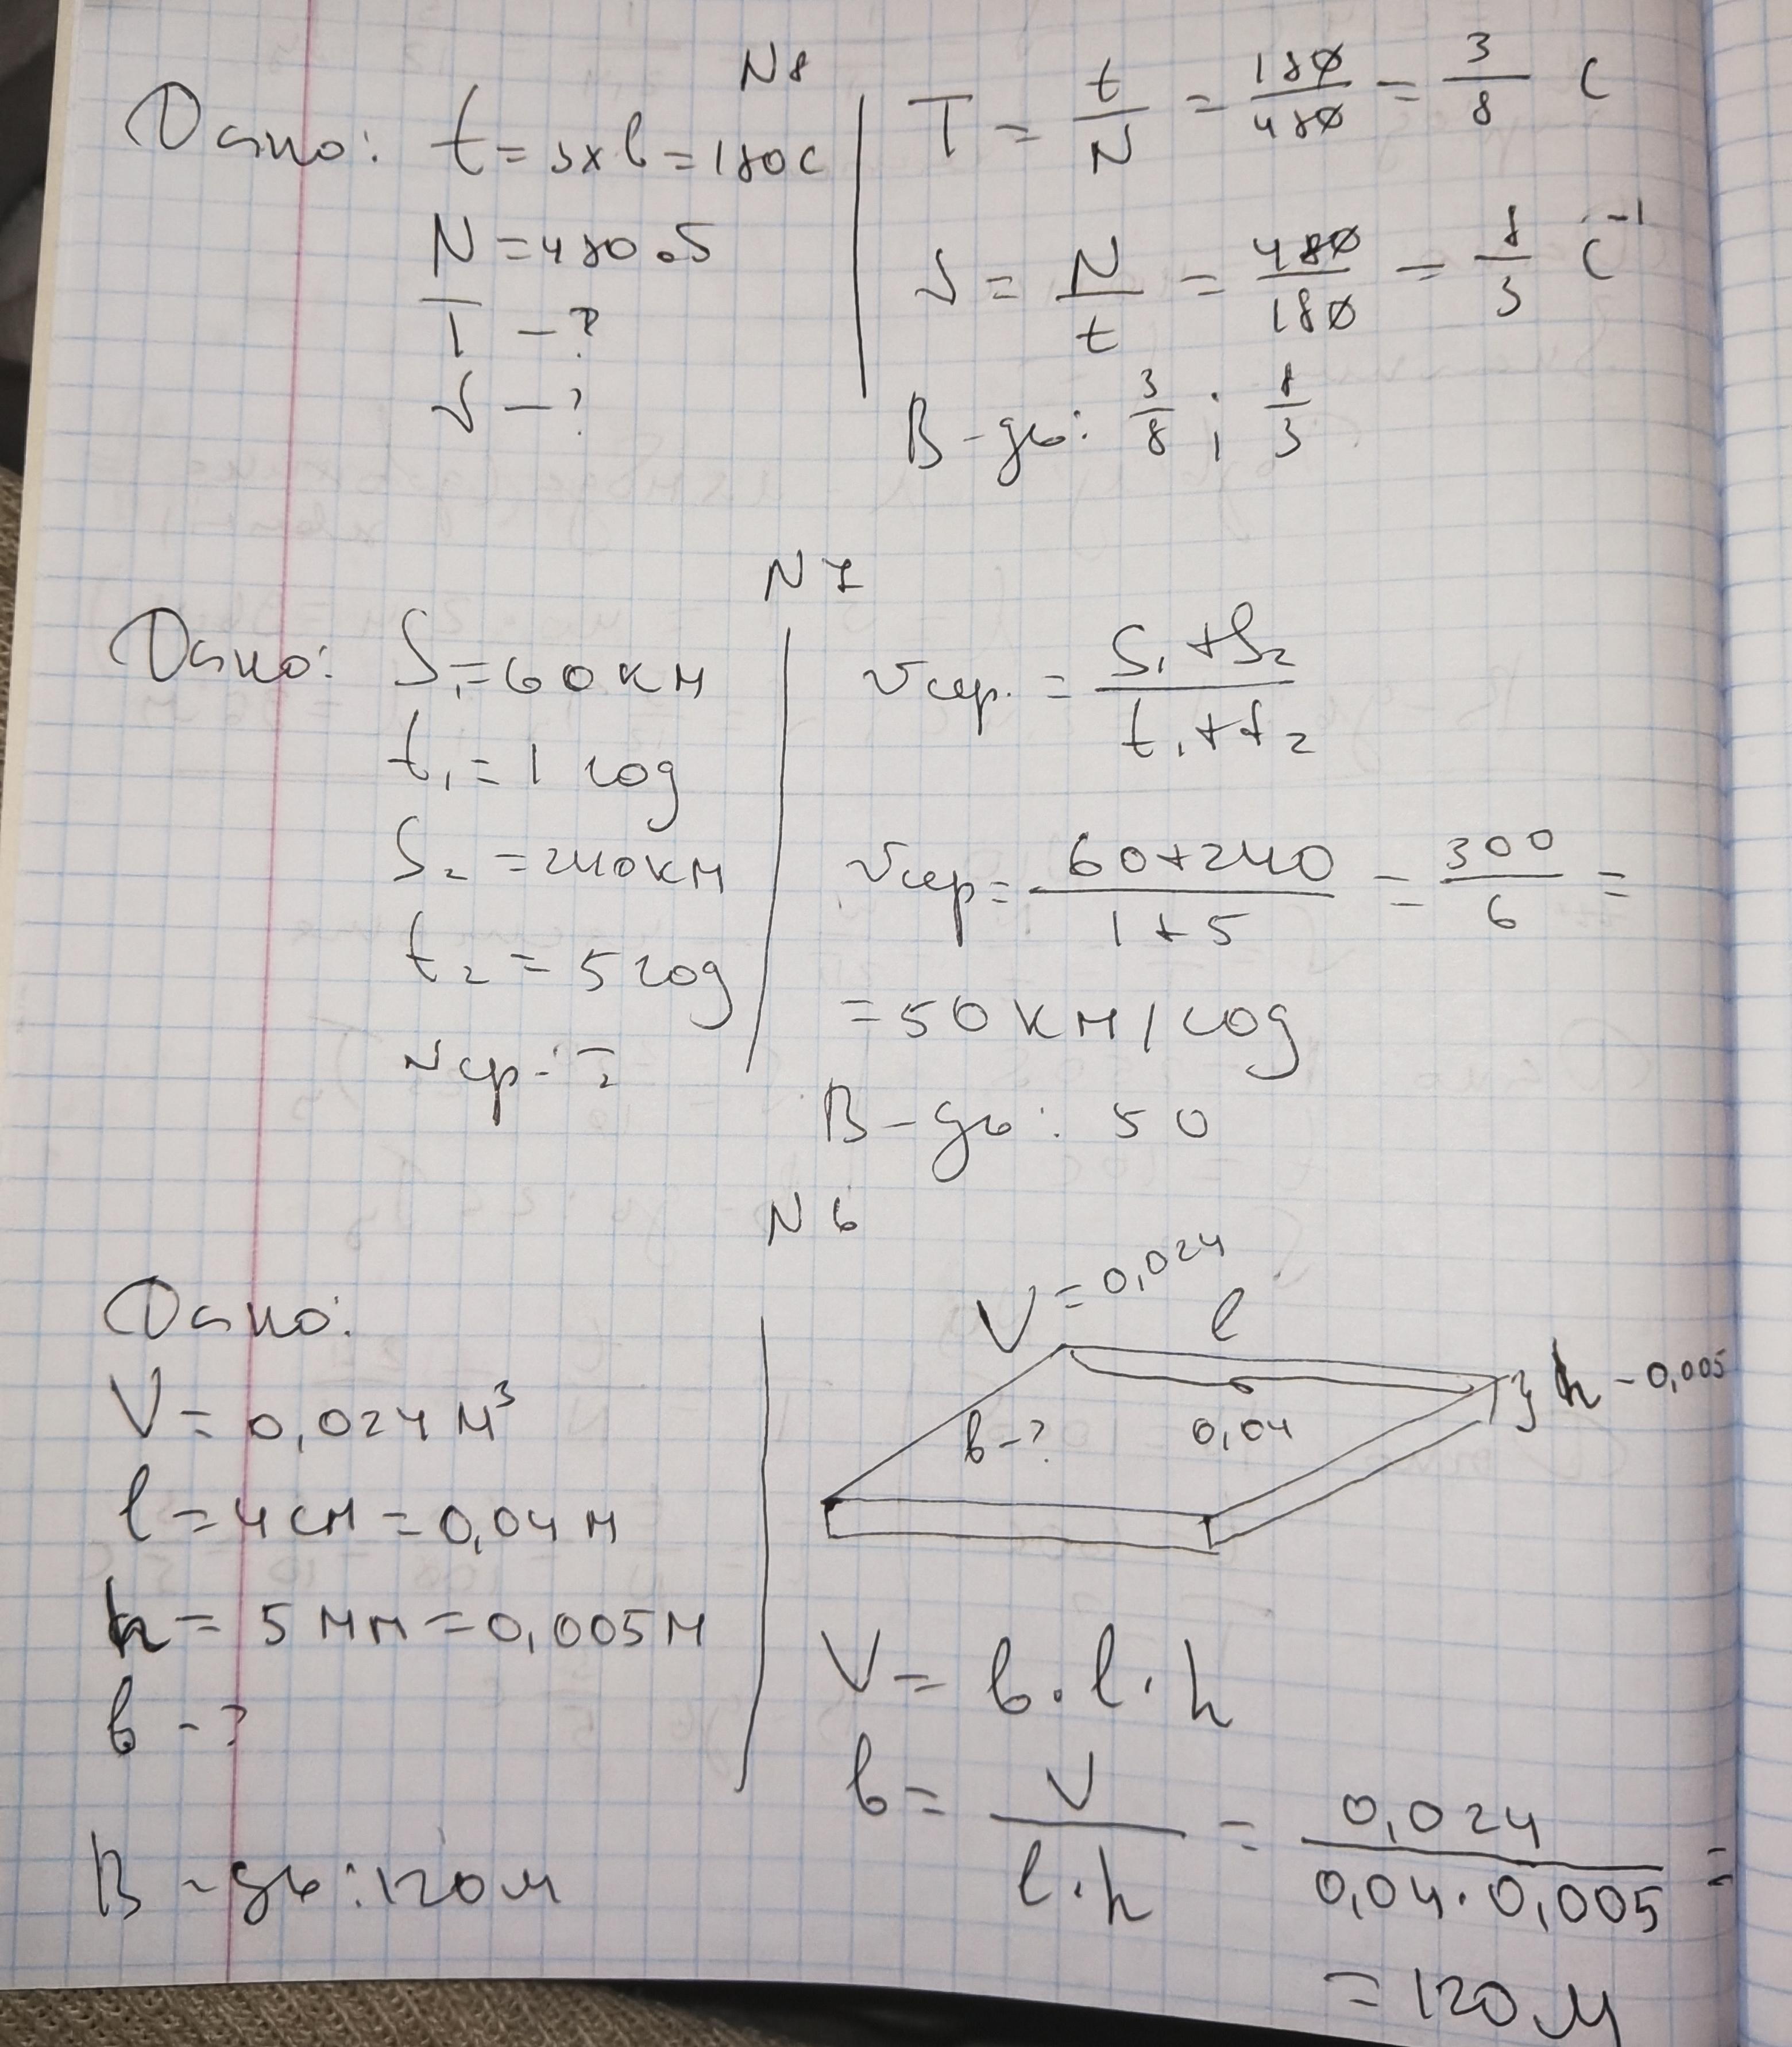 N8
Дано: t = 3хв = 180с
N = 480 об
T - ?
ν - ?
T = t/N = 180/480 = 3/8 с
ν = N/t = 480/180 = 8/3 с⁻¹
В-дь: 3/8 ; 8/3
N7
Дано: S₁ = 60 км
t₁ = 1 год
S₂ = 240 км
t₂ = 5 год
vср. - ?
vсер. = S₁ + S₂ / t₁ + t₂
vсер = 60+240 / 1+5 = 300/6 =
= 50 км/год
В-дь: 50
N6
Дано:
V = 0,024 м³
l = 4 см = 0,04 м
h = 5 мм = 0,005 м
b - ?
В-дь: 120 м
V = 0,024
l
h - 0,005
b - ?
0,04
V = b · l · h
b = V / l · h = 0,024 / 0,04 · 0,005 =
= 120 м